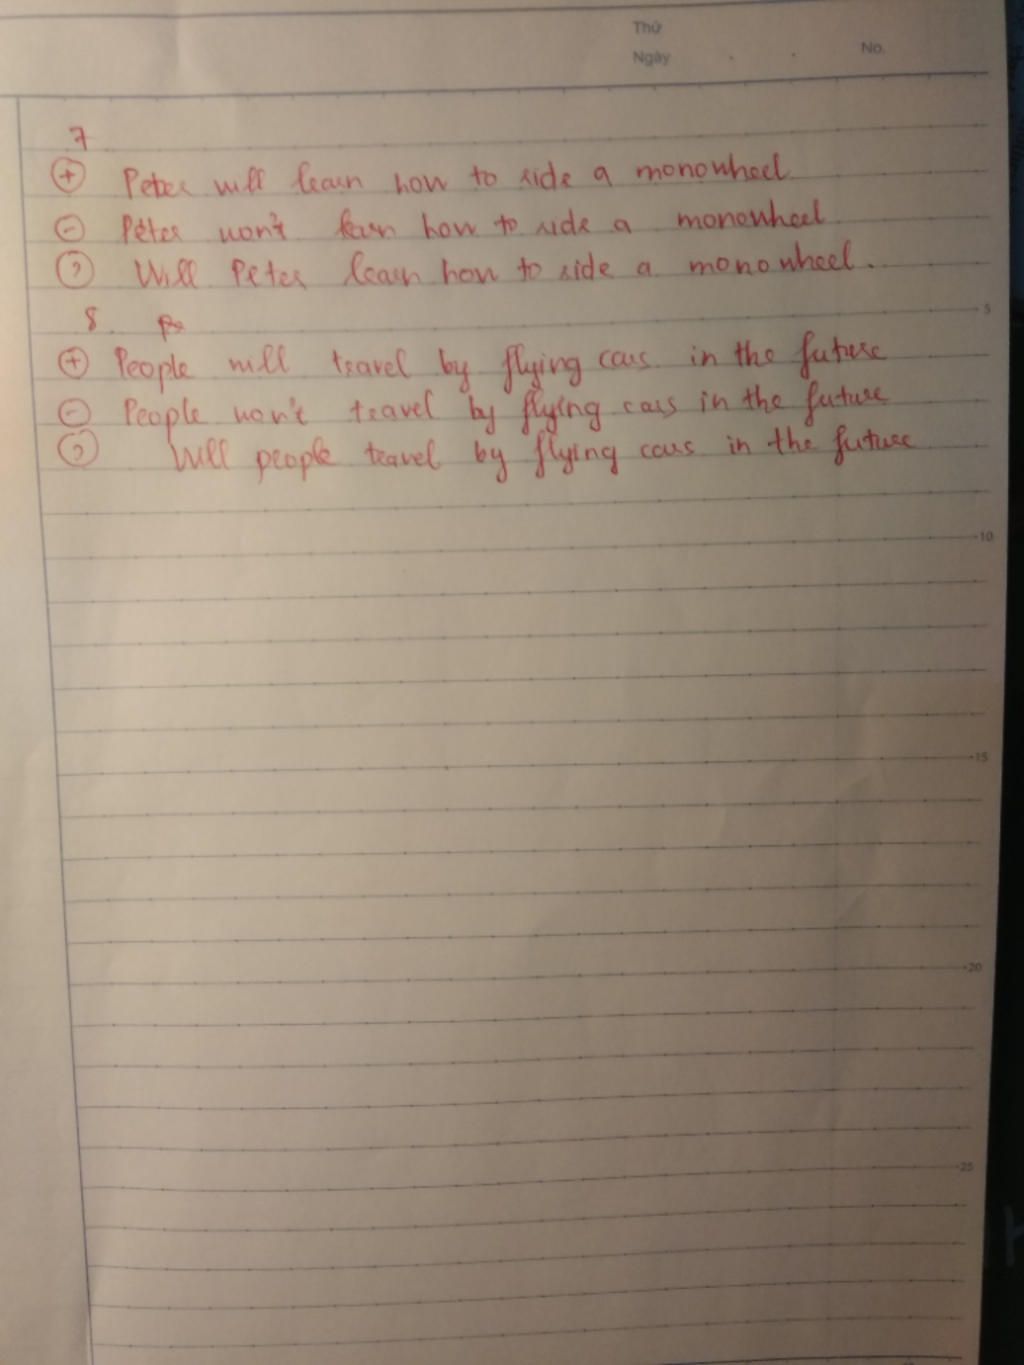 Thứ
Ngày . . No.
7
+ Peter will learn how to ride a monowheel
- Peter won't learn how to ride a monowheel
? Will Peter learn how to ride a monowheel.
8 Pe
+ People will travel by flying cars in the future
5
- People won't travel by flying cars in the future
? Will people travel by flying cars in the future
10
15
20
25